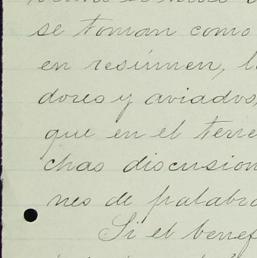 se toman como
en resúmen, l
dores y aviados,
que en el terre
chas discusion
nes de palabra
Si el benef